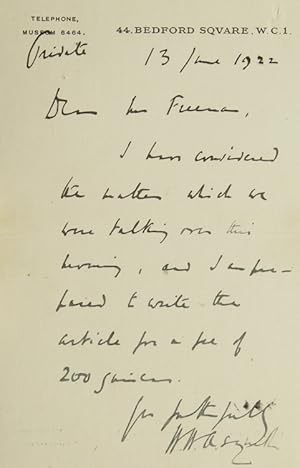 TELEPHONE,
MUSEUM 6464.
44, BEDFORD SQVARE, W.C.1.
Private
13 June 1922
Dear Mr Freeman,
I have considered
the matter which we
were talking over this
morning, and I am pre-
pared to write the
article for a fee of
200 guineas.
Yrs faithfully
HH Asquith